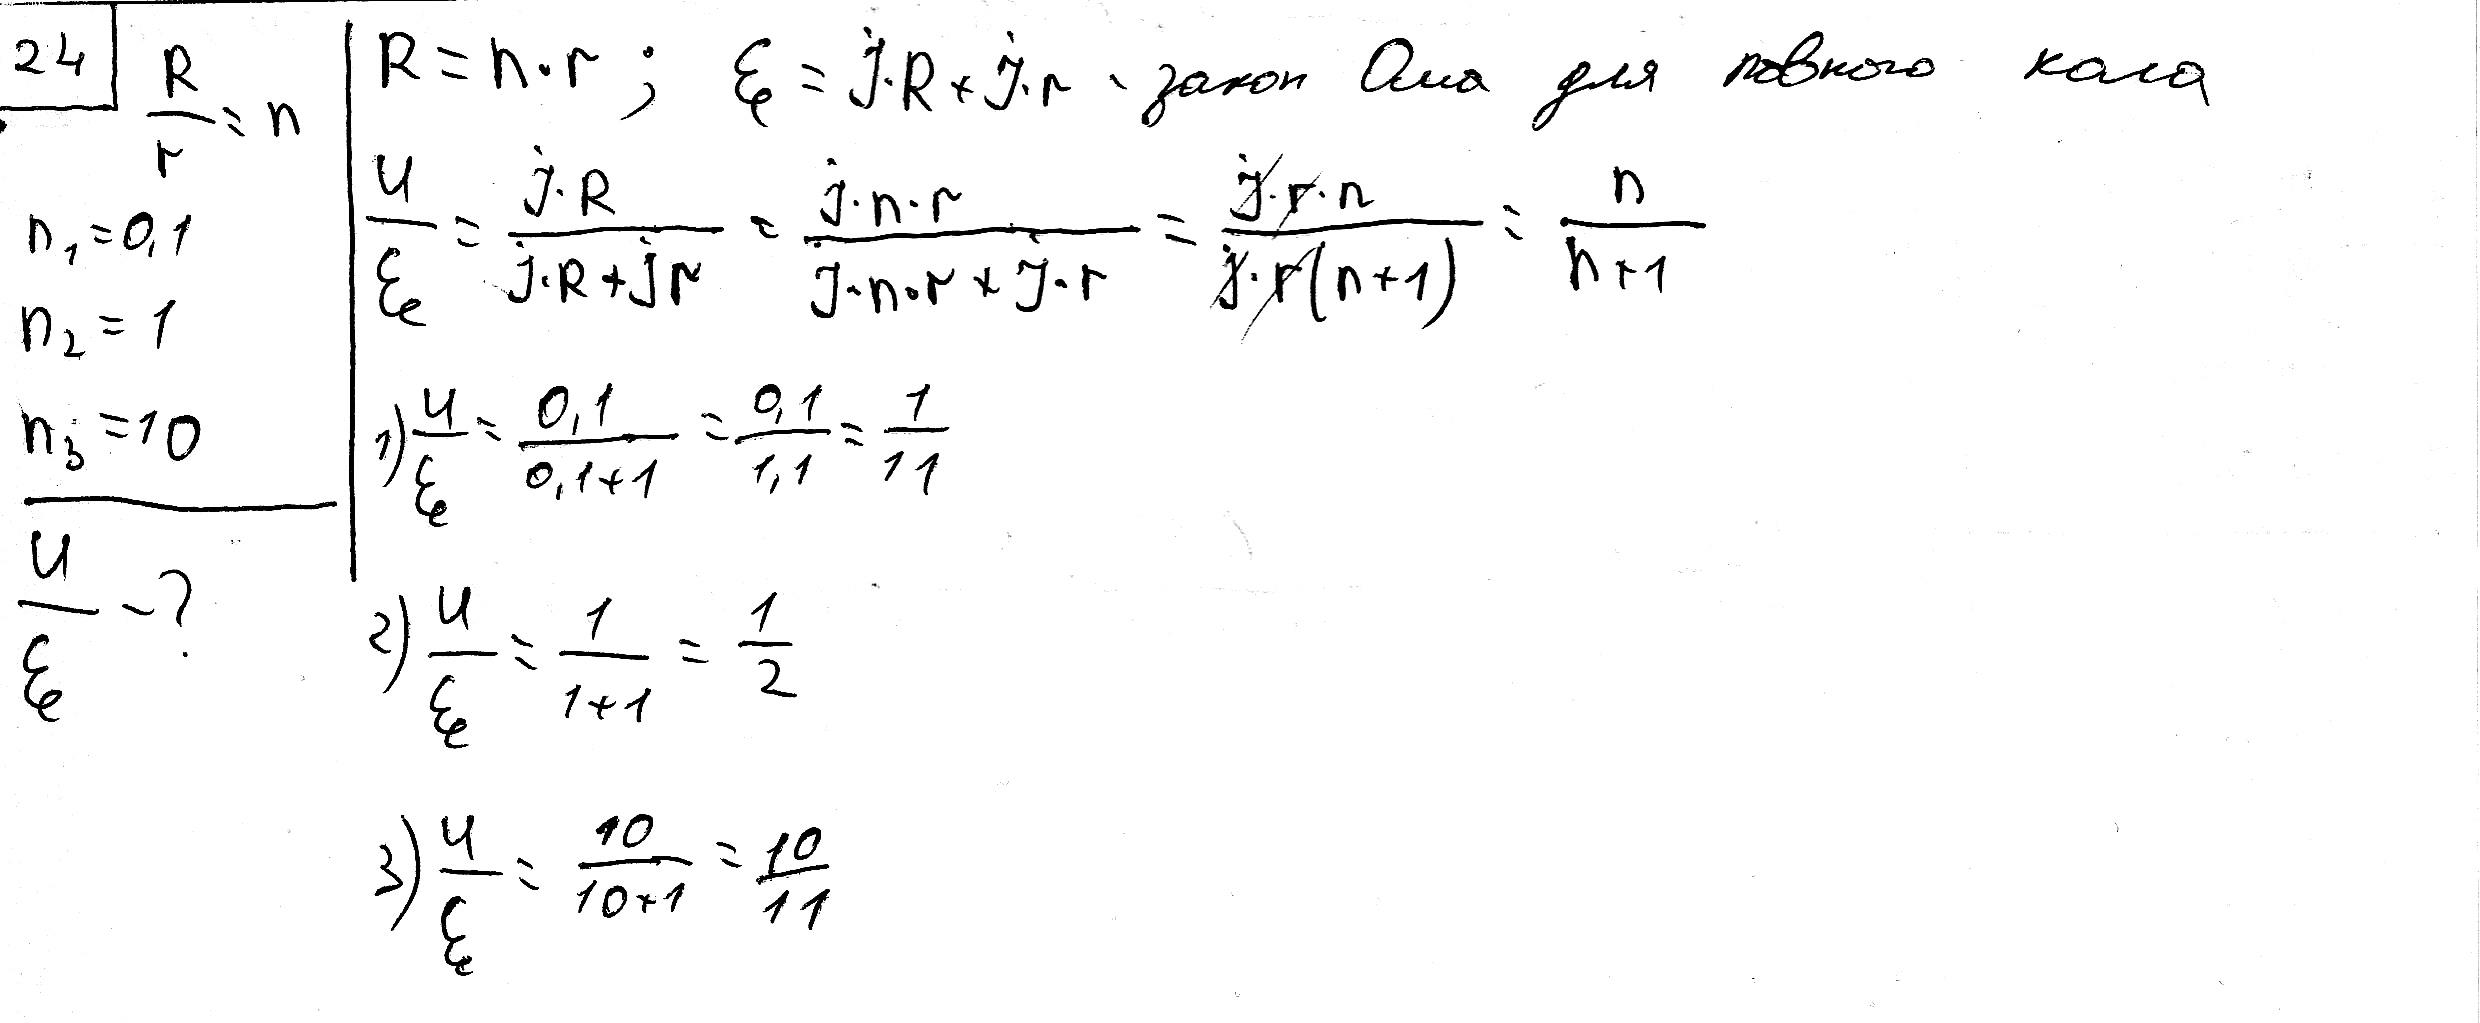 24
R/r = n
n₁ = 0,1
n₂ = 1
n₃ = 10
U/ℰ - ?
R = n · r ; ℰ = J·R + J·r - закон Ома для повного кола
U/ℰ = J·R / (J·R + Jr) = J·n·r / (J·n·r + J·r) = J·r·n / (J·r(n+1)) = n / (n+1)
1) U/ℰ = 0,1 / (0,1+1) = 0,1/1,1 = 1/11
2) U/ℰ = 1 / (1+1) = 1/2
3) U/ℰ = 10 / (10+1) = 10/11